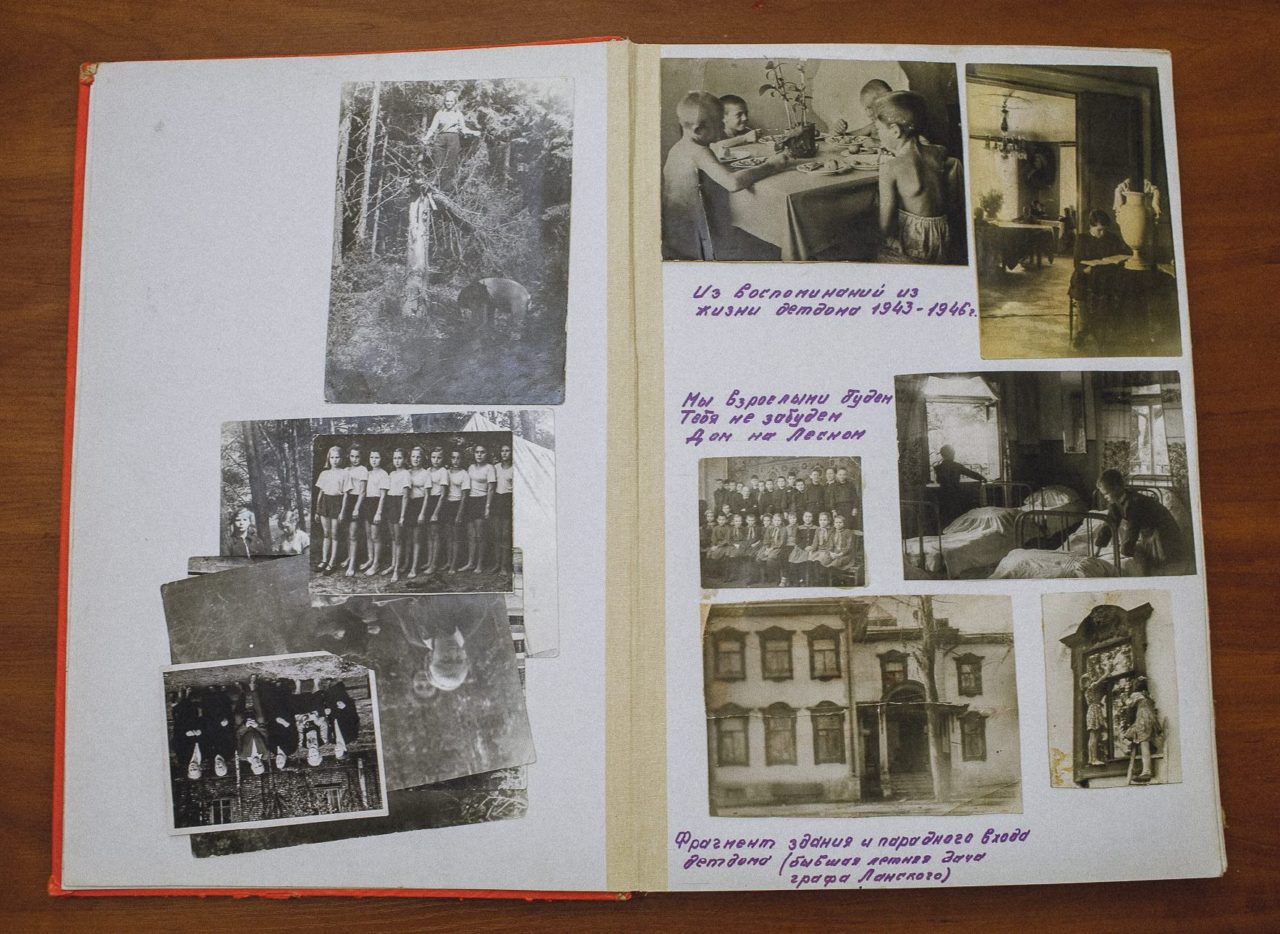 Из воспоминаний из
жизни детдома 1943-1946г.
Мы взрослыми будем
Тебя не забудем
Дом на Лесном
Фрагмент здания и парадного входа
детдома (бывшая летняя дача
графа Ланского)